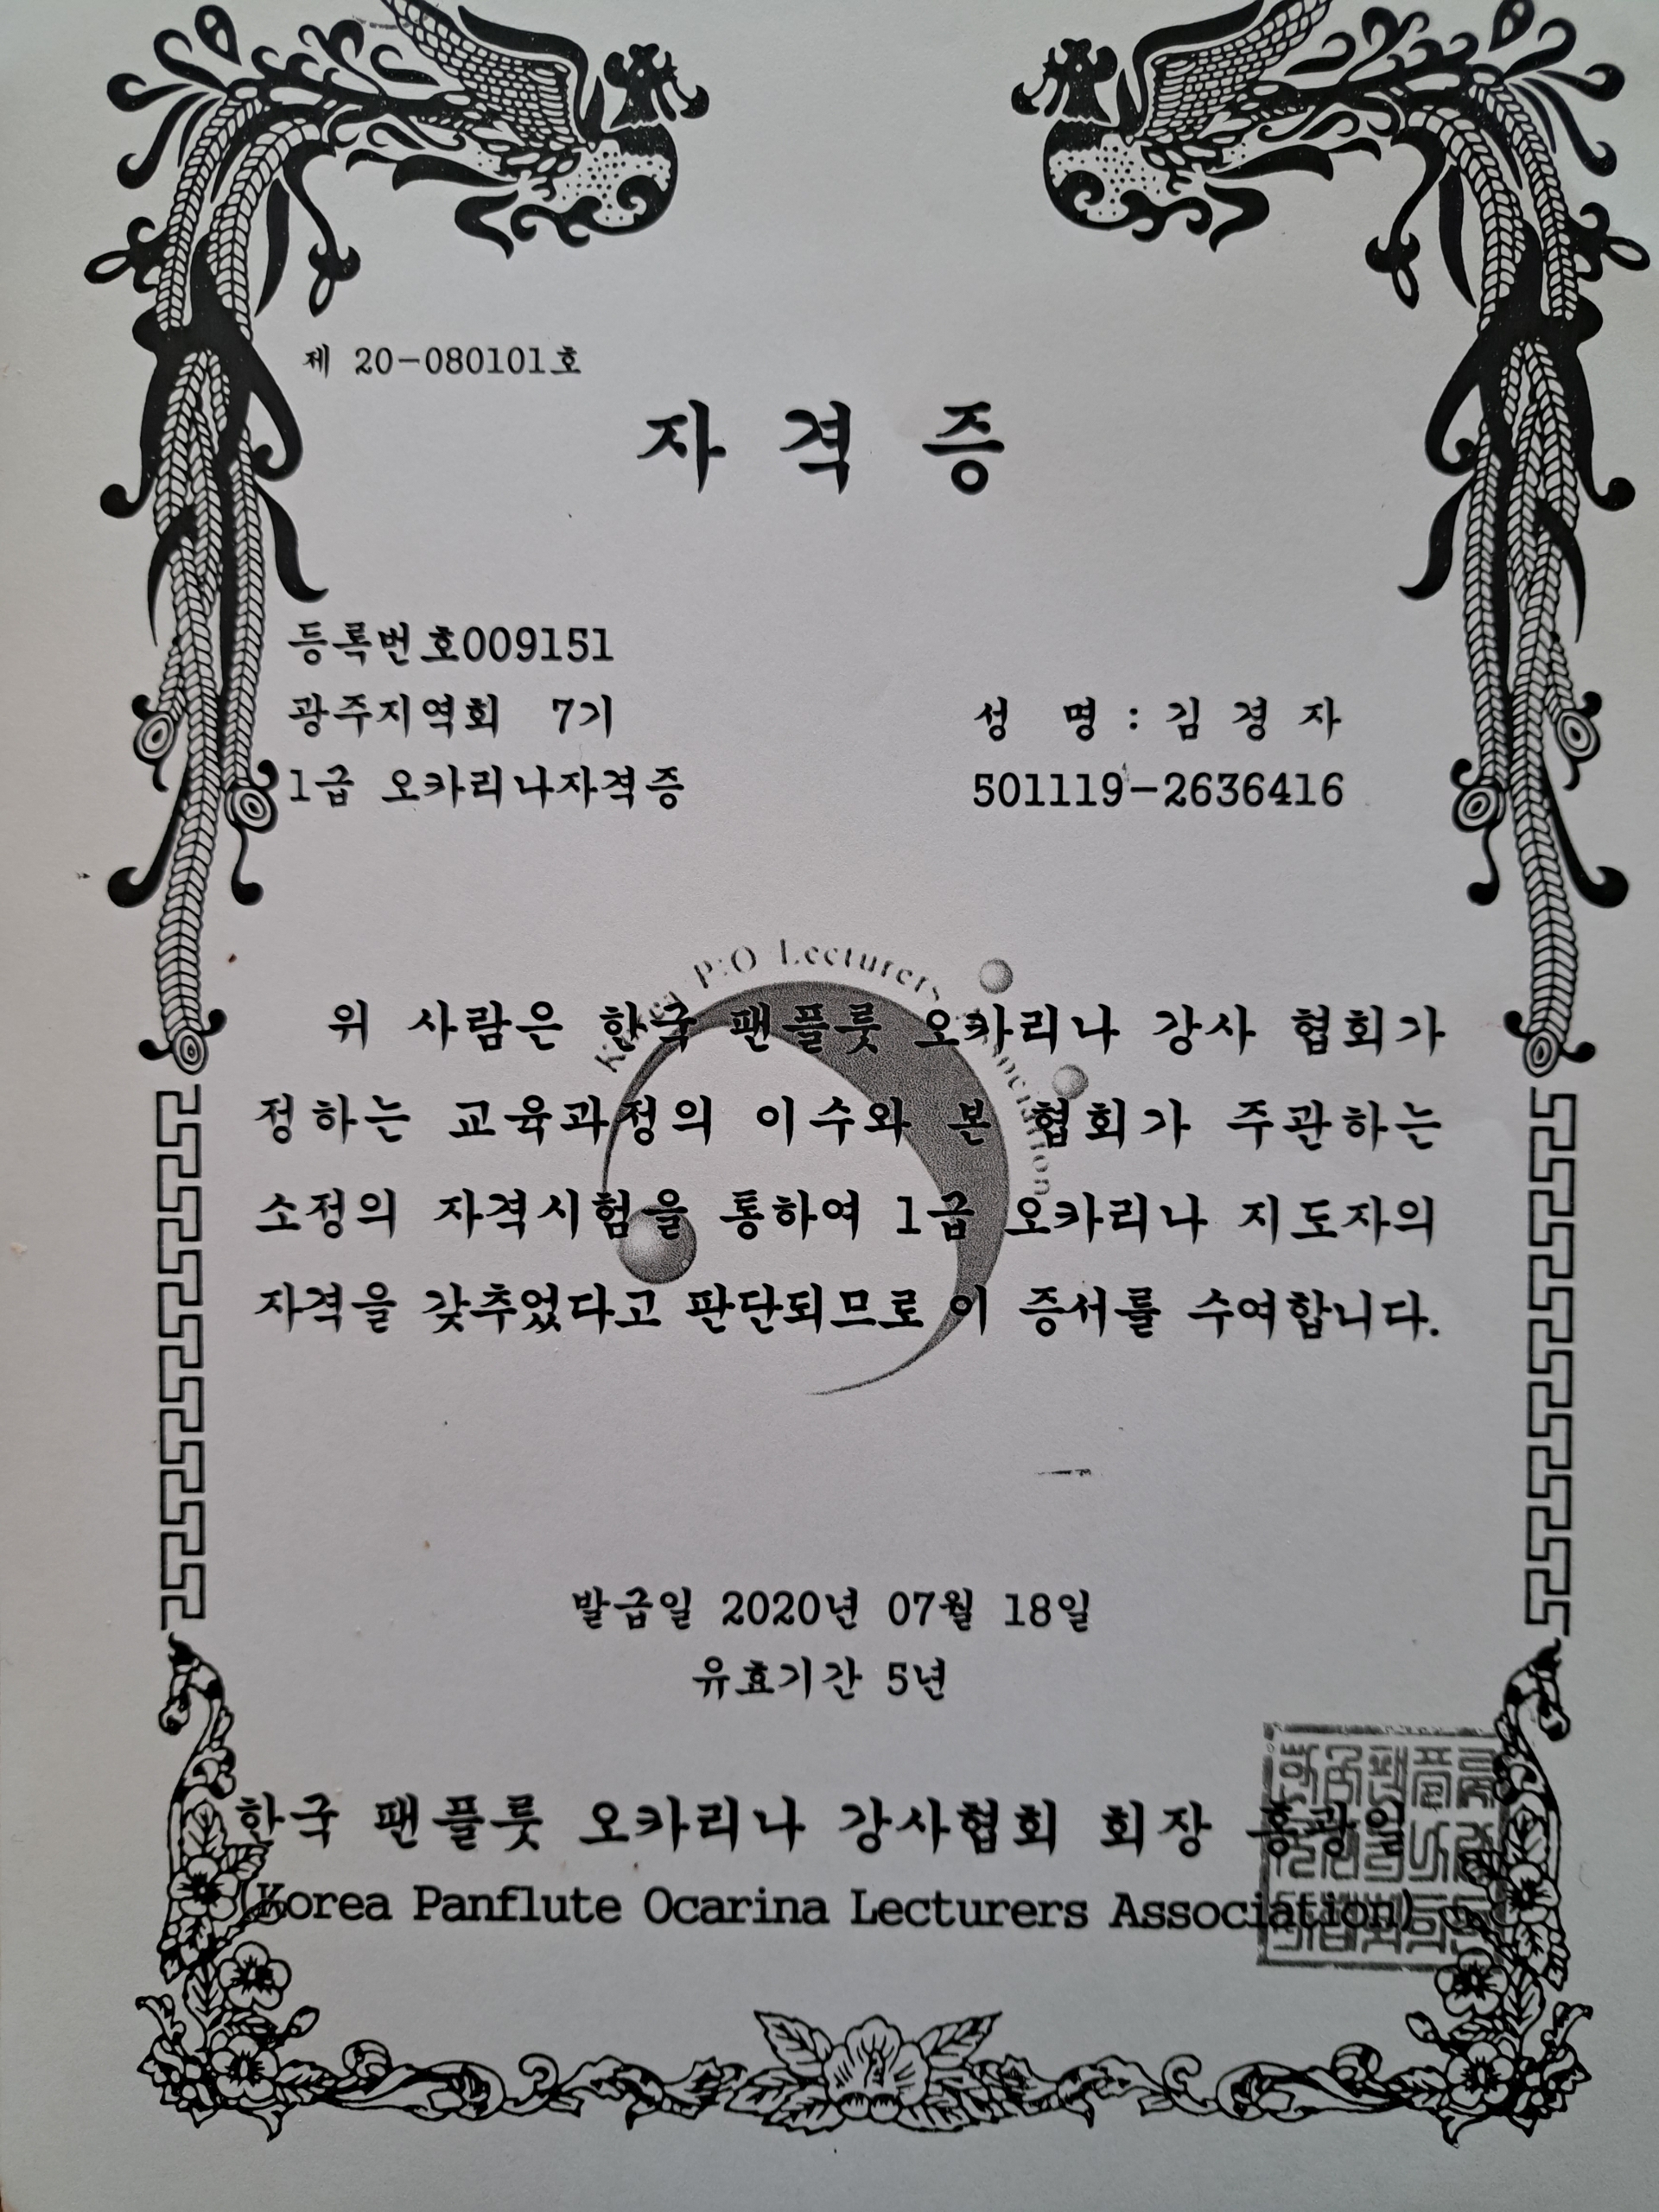 제 20-080101호
자 격 증
등록번호009151
광주지역회 7기
성 명 : 김 경 자
1급 오카리나자격증
501119-2636416
P.O Lecturers
위 사람은 한국 팬플룻 오카리나 강사 협회가
정하는 교육과정의 이수와 본 협회가 주관하는
소정의 자격시험을 통하여 1급 오카리나 지도자의
자격을 갖추었다고 판단되므로 이 증서를 수여합니다.
발급일 2020년 07월 18일
유효기간 5년
한국 팬플룻 오카리나 강사협회 회장 홍광일
(Korea Panflute Ocarina Lecturers Association)